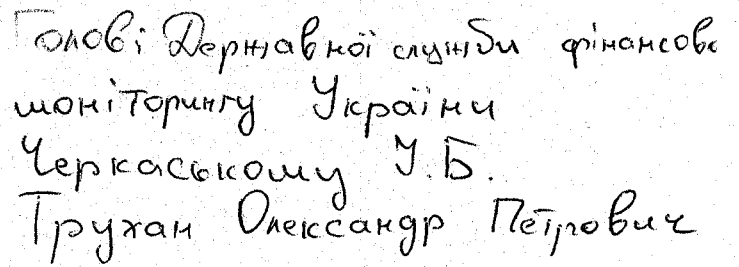 Голові Державної служби фінансово
моніторингу України
Черкаському І.Б.
Трухан Олександр Петрович